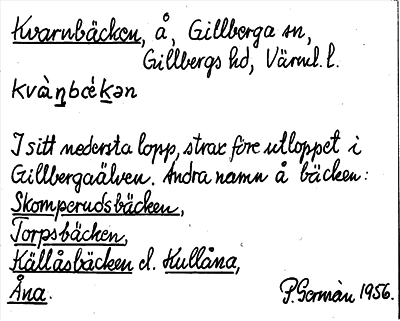 Kvarnbäcken, å, Gillberga sn,
Gillbergs hd, Värml. l.
kvàṉbœ́ḵən
I sitt nedersta lopp, strax före utloppet i
Gillbergaälven. Andra namn å bäcken:
Skomperudsbäcken,
Torpsbäcken,
Källåsbäcken el. Kullåna,
Åna.
P. Gorman 1956.